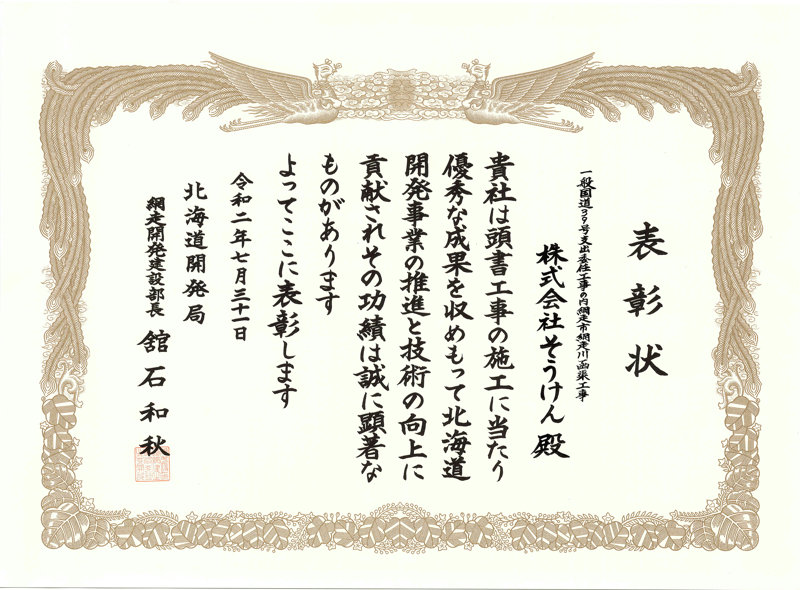 表彰状
一般国道39号支出委任工事の内網走市網走川函渠工事
株式会社そうけん殿
貴社は頭書工事の施工に当たり
優秀な成果を収めもって北海道
開発事業の推進と技術の向上に
貢献されその功績は誠に顕著な
ものがあります
よってここに表彰します
令和二年七月三十一日
北海道開発局
網走開発建設部長
舘石和秋